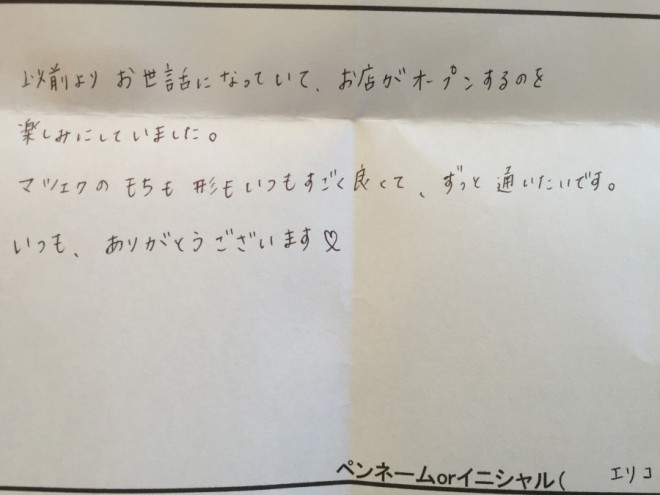 以前より お世話になっていて、お店がオープンするのを
楽しみにしていました。
マツエクの もちも 形も いつもすごく良くて、ずっと 通いたいです。
いつも、ありがとうございます♡
ペンネームorイニシャル( エリコ